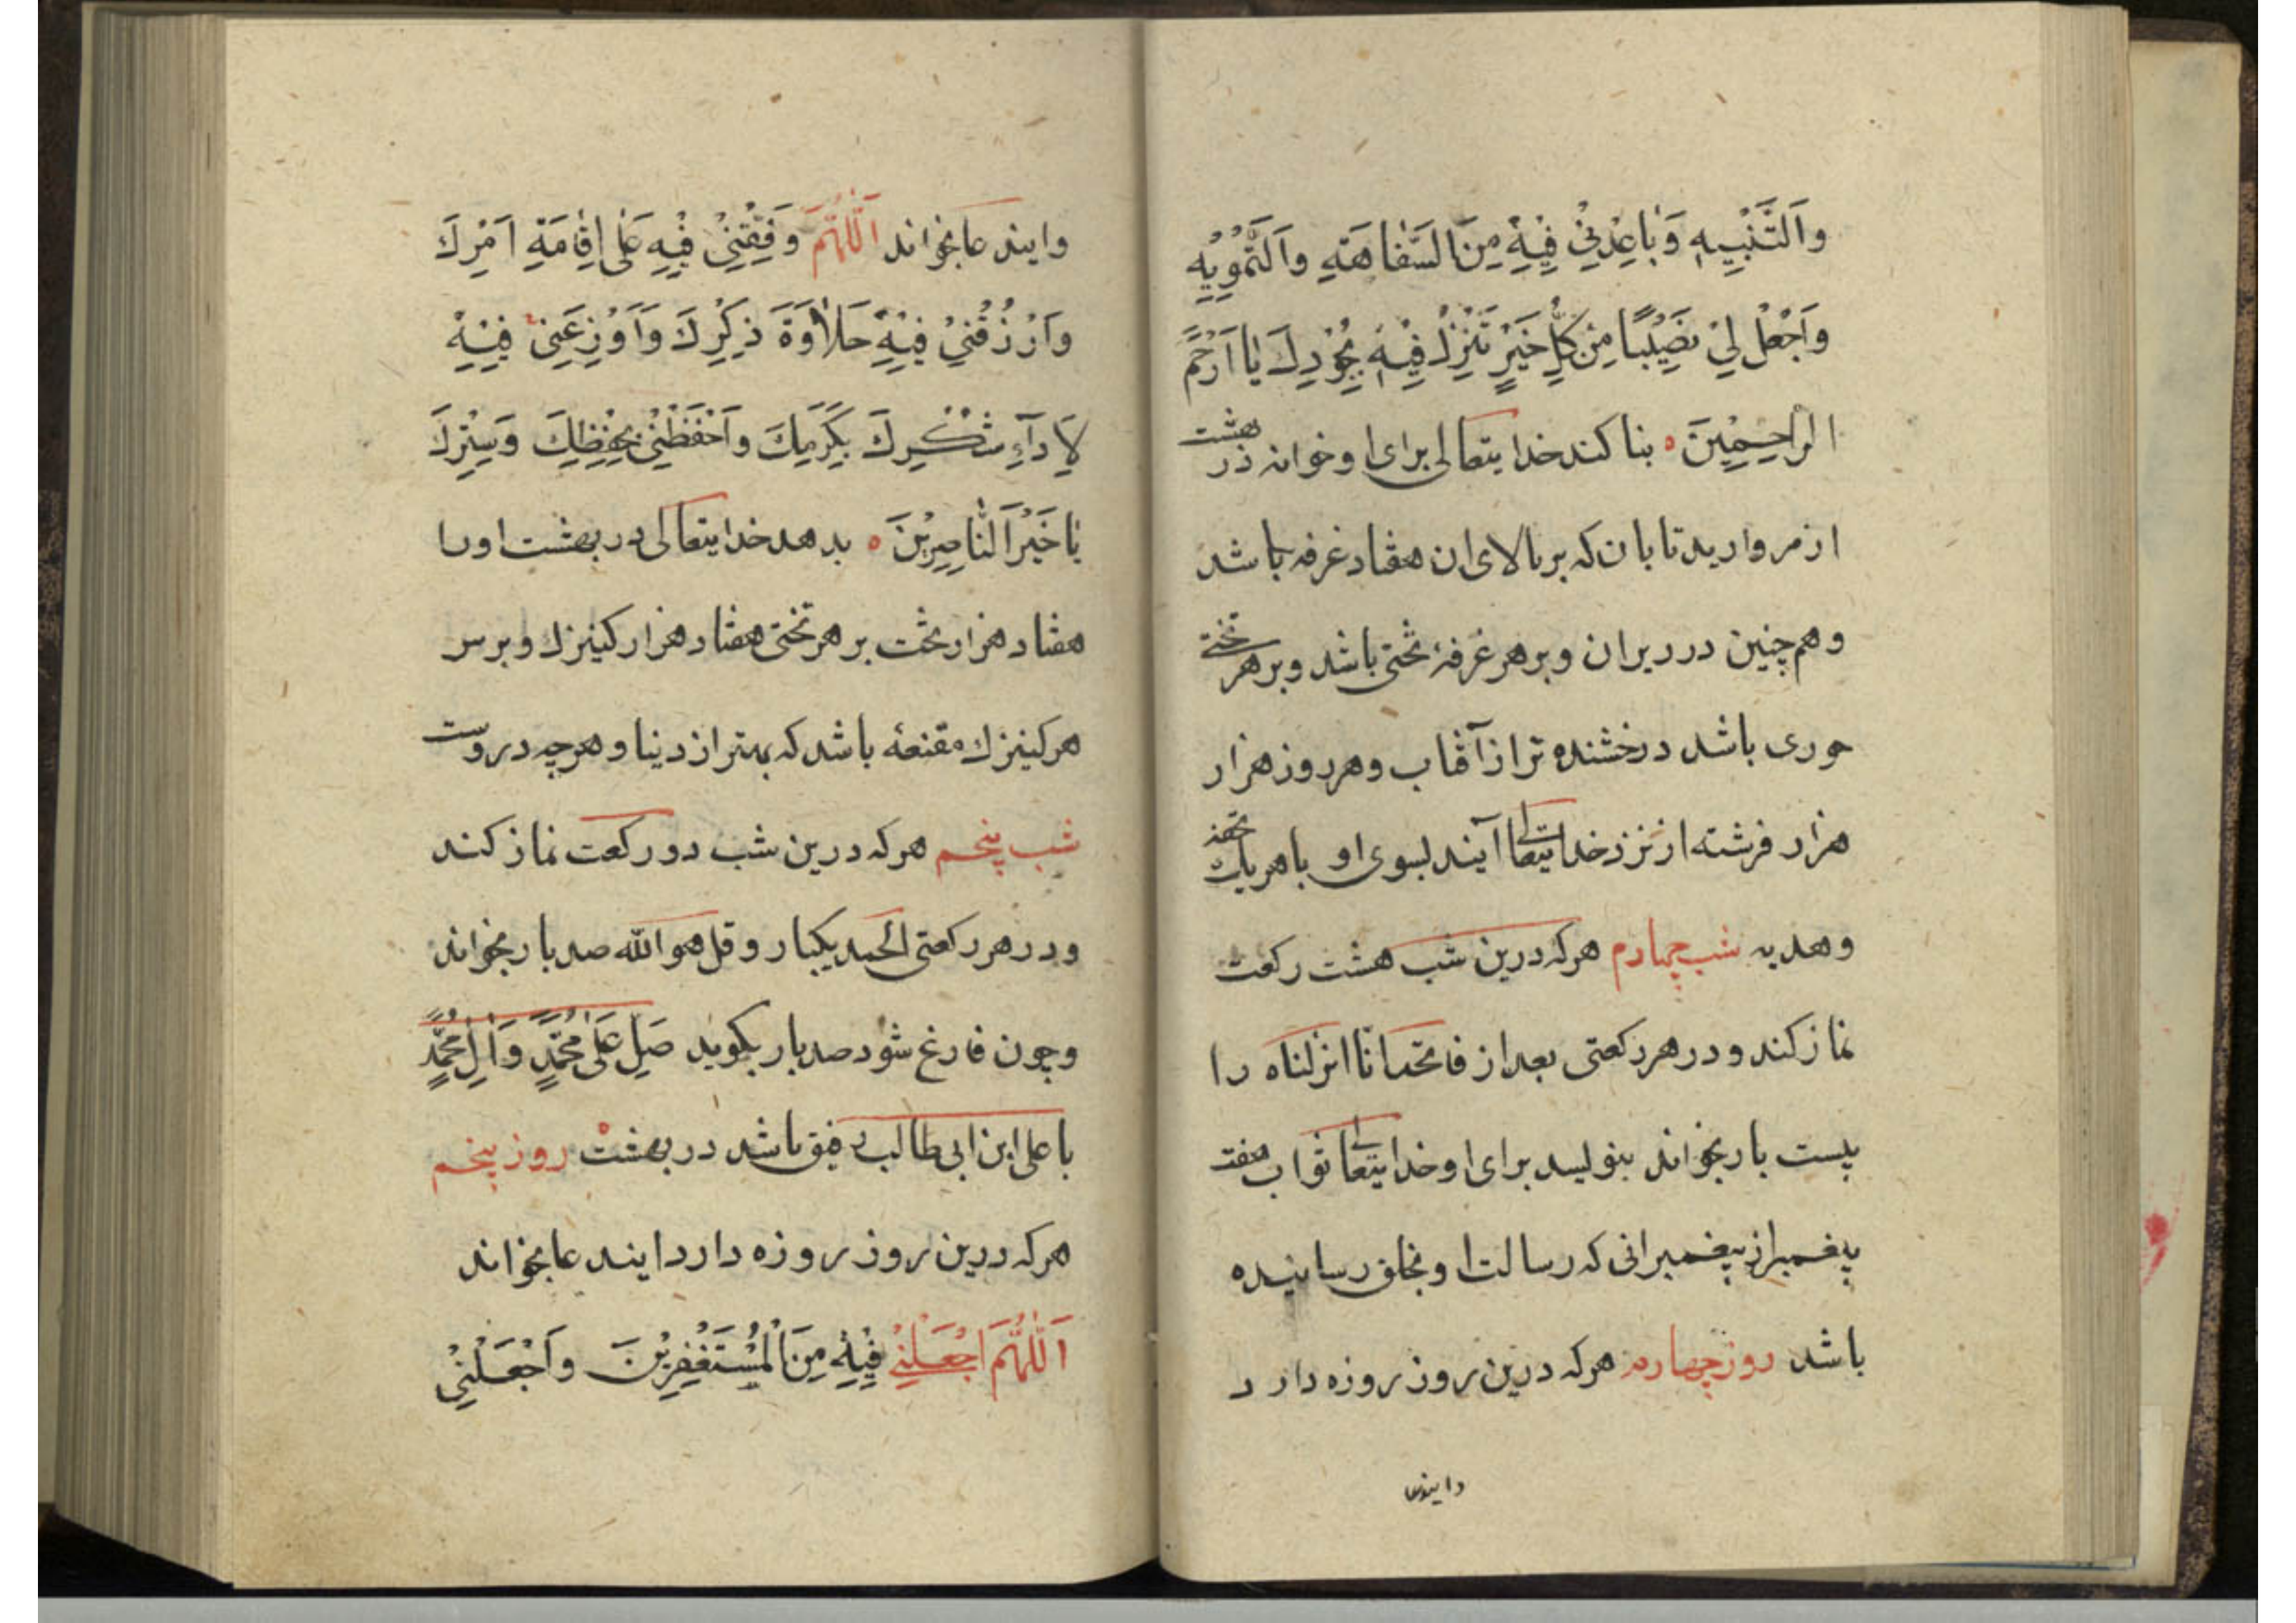 وَالتَّنْبِيهِ وَبَاعِدْنِي فِيهِ مِنَ السَّفَاهَةِ وَالتَّمْوِيهِ
وَاجْعَلْ لِي نَصِيبًا مِنْ كُلِّ خَيْرٍ تُنْزِلُ فِيهِ بِجُودِكَ يَا اَرْحَمَ
الرَّاحِمِينَ بنا کند خدایتعالی برای او خوانه در بهشت
از مروارید تابان که بر بالای ان هفتاد غرفه باشد
وهم چنین در زیر ان و بر هر غرفهٔ تختی باشد و بر هر تختی
حوری باشد درخشنده تر از آفتاب وهر روز هزار
هزار فرشته از نزد خدایتعالی آیند بسوی او با هر یک تحفه
وهدیه شب چهارم هرکه درین شب هشت رکعت
نماز کند و در هر رکعتی بعد از فاتحه انا انزلناه را
بیست بار بخواند بنویسد برای او خدایتعالی ثواب هفت
پیغمبر از پیغمبرانی که رسالت او بخلق رسانیده
باشد روز چهارم هرکه درین روز روزه دارد
و ایندعا
وایندعا بخواند اَللّٰهُمَّ وَفِّقْنِي فِيهِ عَلٰى اِقَامَةِ اَمْرِكَ
وَارْزُقْنِي فِيهِ حَلَاوَةَ ذِكْرِكَ وَاَوْزِعْنِي فِيهِ
لِاَدَاءِ شُكْرِكَ بِكَرَمِكَ وَاحْفَظْنِي بِحِفْظِكَ وَسِتْرِكَ
يَا خَيْرَ النَّاصِرِينَ بدهد خدایتعالی در بهشت او را
هفتاد هزار تخت بر هر تختی هفتاد هزار کنیزك و بر سر
هر کنیزك مقنعهٔ باشد که بهتر از دنیا و هرچه دروست
شب پنجم هرکه درین شب دو رکعت نماز کند
و در هر رکعتی الحمد یکبار و قل هو الله صد بار بخواند
و چون فارغ شود صد بار بگوید صَلِّ عَلٰى مُحَمَّدٍ وَاٰلِ مُحَمَّدٍ
با علی ابن ابی طالب رفیق باشد در بهشت روز پنجم
هرکه درین روز روزه دارد ایندعا بخواند
اَللّٰهُمَّ اجْعَلْنِي فِيهِ مِنَ الْمُسْتَغْفِرِينَ وَاجْعَلْنِي